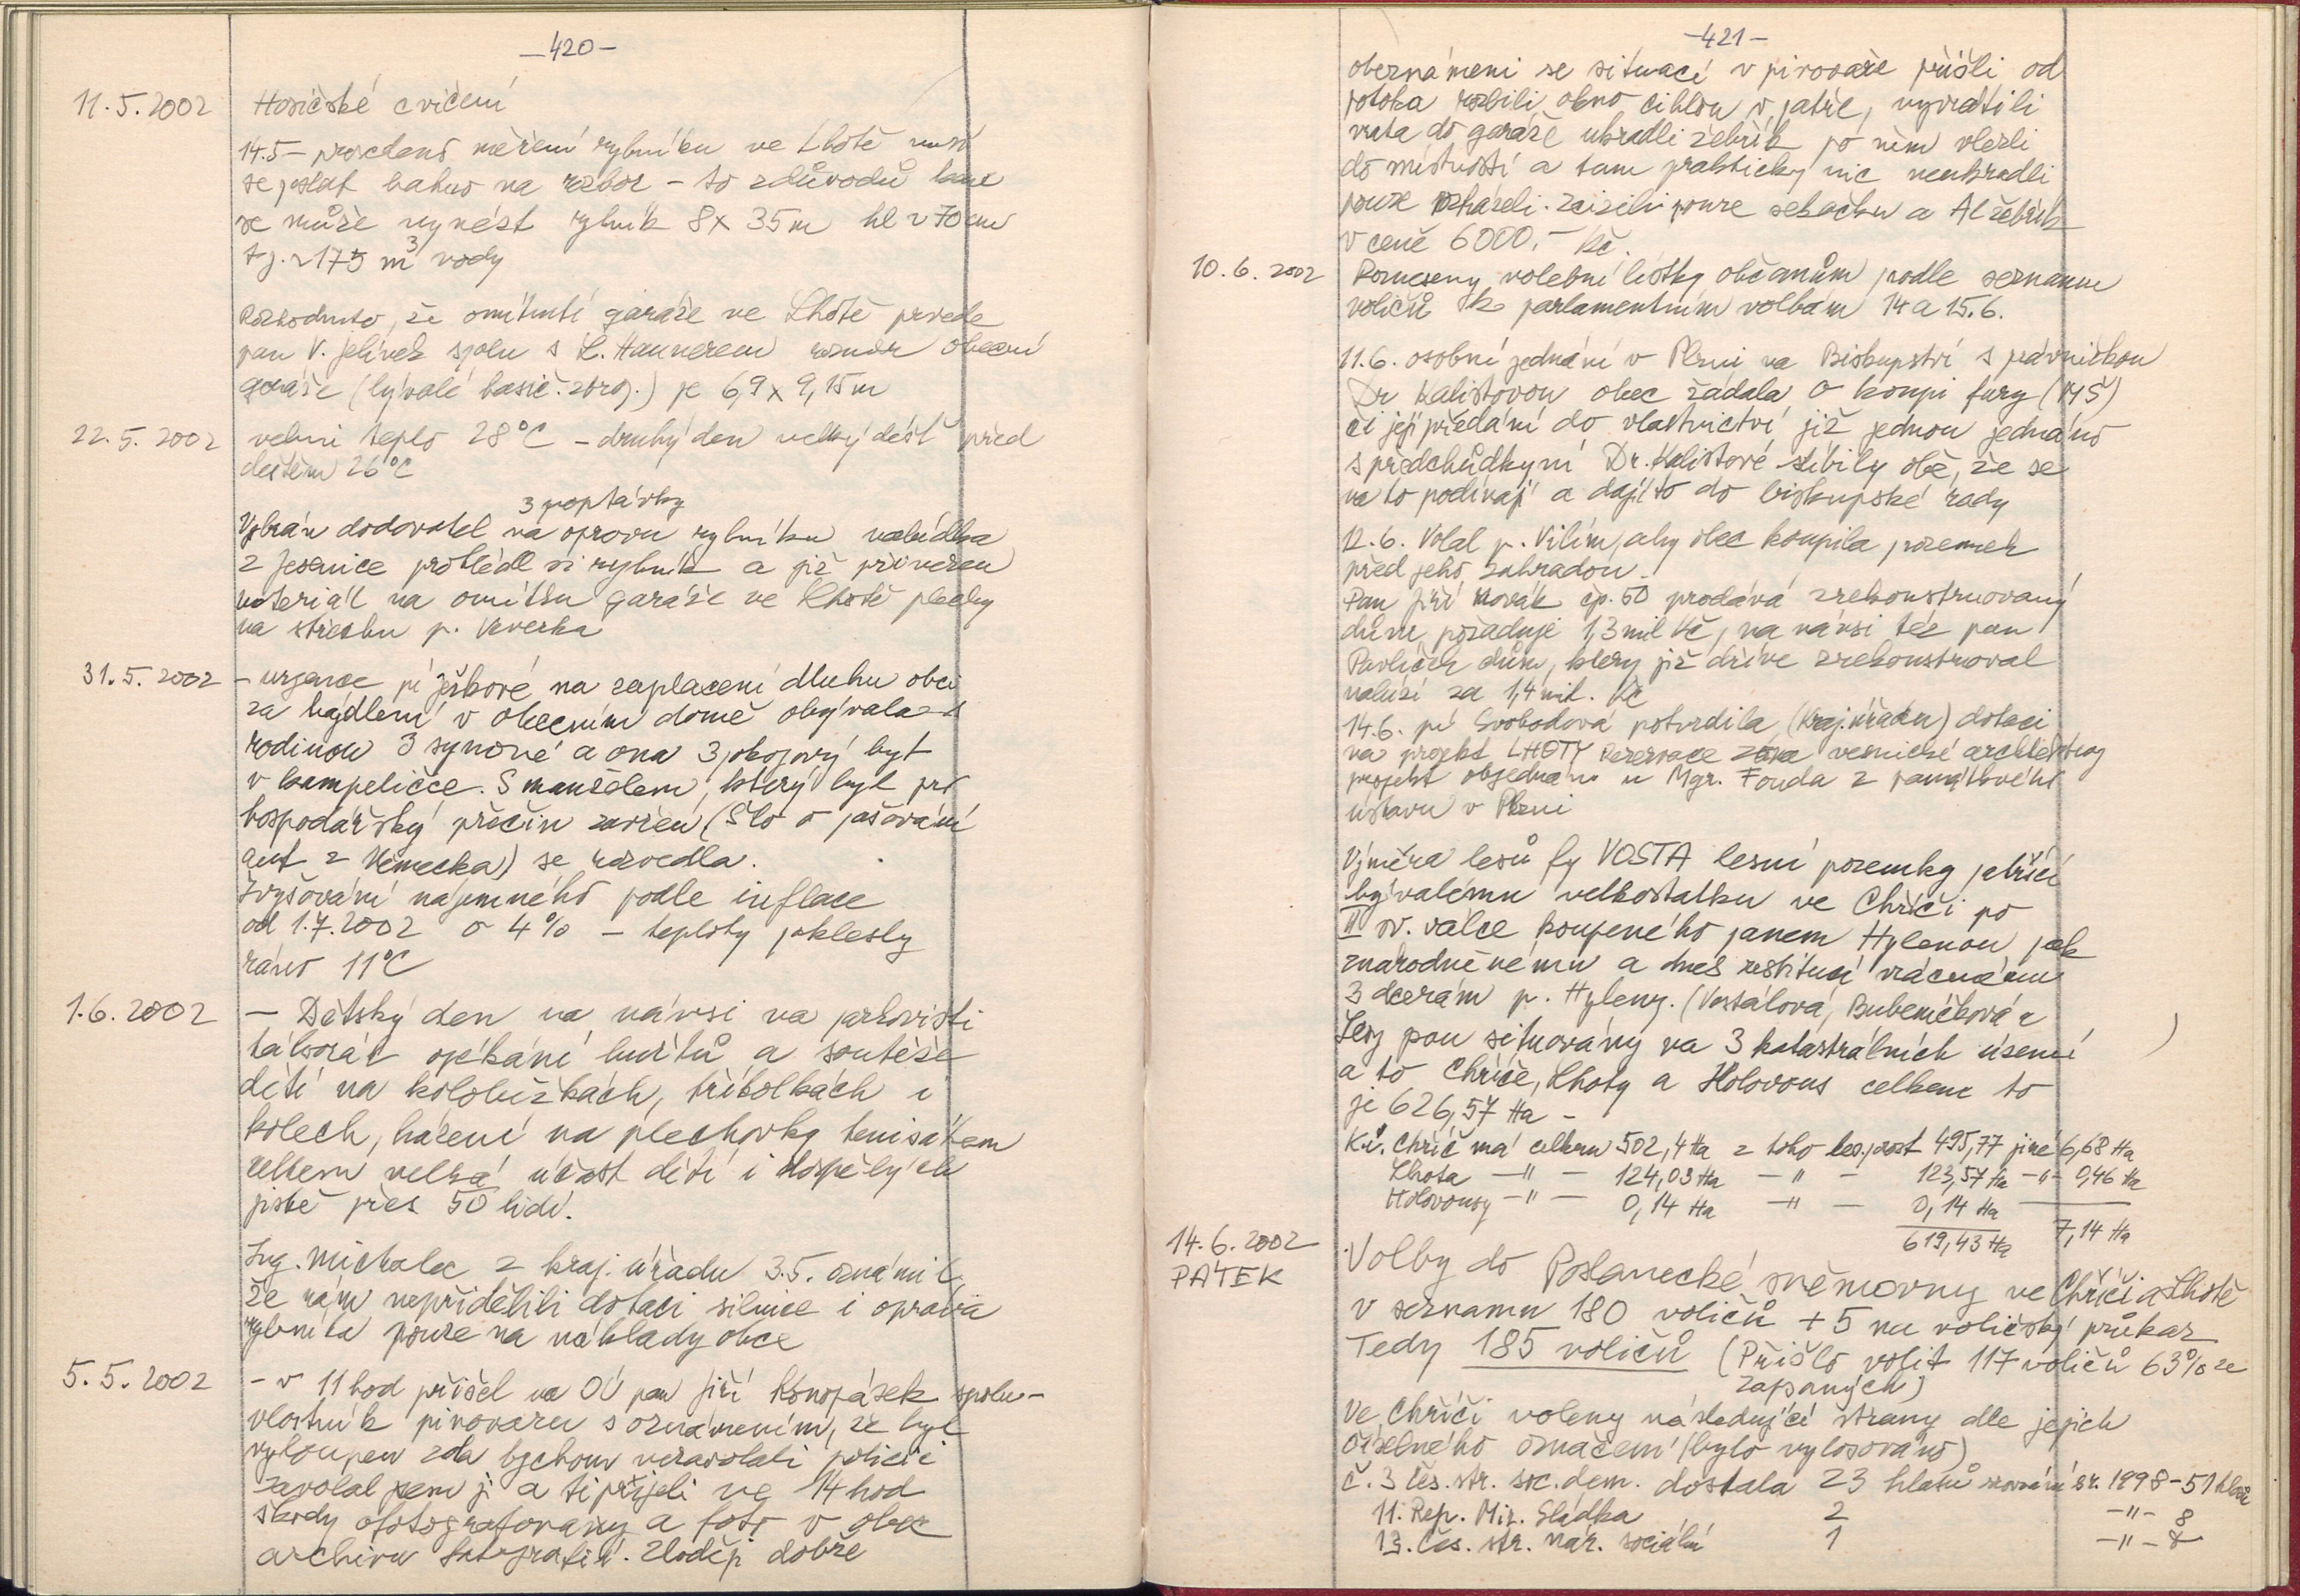 —420—
11.5.2002 Hasičské cvičení
14.5 – provedeno měření rybníku ve Lhotě musí
se poslat bahno na rozbor – to zdůvodů kam
se může vyvést rybník 8x 35m hl ~ 70cm
tj. ~ 175 m³ vody
Rozhodnuto, že omítnutí garáže ve Lhotě provede
pan V. Jelínek spolu s L. Haunerem rozměr obecní
garáže (bývalé hasič. zbroj.) je 6,9 x 9,15m
22.5.2002 velmi teplo 28°C – druhý den velký déšť před
deštěm 26°C
3 poptávky
Vybrán dodavatel na opravu rybníku nabídka
z Jesenice prohlédl si rybník a již přivezen
materiál na omítku garáže ve Lhotě plechy
na střechu p. Veverka
31.5.2002 – urgence pí Ježkové na zaplacení dluhu obci
za bydlení v obecním domě obývala s
rodinou 3 synové a ona 3 pokojový byt
v kampeličce. S manželem, který byl pro
hospodářský přečin zavřen (šlo o pašování
aut z Německa) se rozvedla.
Zvyšování nájemného podle inflace
od 1.7.2002 o 4% – teploty poklesly
ráno 11°C
1.6.2002 – Dětský den na návsi na parkovišti
táborák opékání buřtů a soutěže
dětí na koloběžkách, tříkolkách i
kolech, házení na plechovky tenisákem
celkem velká účast dětí i dospělých
jistě přes 50 lidí.
Ing. Michalec z kraj. úřadu 3.5. oznámil,
že nám nepřidělili dotaci silnice i oprava
rybníka pouze na náklady obce
5.5.2002 – v 11 hod přišel na OÚ pan Jiří Konopásek spolu-
vlastník pivovaru s oznámením, že byl
vyloupen zda bychom nezavolali policii
zavolal jsem ji a ti přijeli ve 14 hod
škody ofotografovány a foto v obec
archivu fotografií. Zloději dobře
—421—
obeznámeni se situací v pivovaře přišli od
potoka rozbili okno cihlou v patře, vyvrátili
vrata do garáže ukradli žebřík po něm vlezli
do místností a tam prakticky nic neukradli
pouze rozházeli. Zcizili pouze sekačku a Al žebřík
v ceně 6000,– Kč.
10.6.2002 Rozneseny volební lístky občanům podle seznamu
voličů k parlamentním volbám 14 a 15.6.
11.6. osobní jednání v Plzni na Biskupství s právničkou
Dr Kalistovou obec žádala o koupi fary (MŠ)
či její předání do vlastnictví již jednou jednáno
s předchůdkyní Dr. Kalistové slíbily obě, že se
na to podívají a dají to do biskupské rady
12.6. Volal p. Vilím, aby obec koupila pozemek
před jeho zahradou.
Pan Jiří Novák čp. 50 prodává zrekonstruovaný
dům požaduje 1,3 mil Kč, na návsi též pan
Pavlíček dům, který již dříve zrekonstruoval
nabízí za 1,4 mil. Kč
14.6. pí Svobodová potvrdila (Kraj. úřadu) dotaci
na projekt LHOTY Rezervace vesnické architektury
projekt objednáno u Mgr. Fouda z památkového
ústavu v Plzni
Výměra lesů fy VOSTA lesní pozemky patřící
bývalému velkostatku ve Chříči po
II sv. válce koupeného panem Hylenou pak
znárodněnému a dnes restitucí vrácenému
3 dcerám p. Hyleny. (Vostálová, Bubeníčková a )
Lesy jsou situovány na 3 katastrálních území
a to Chříče, Lhoty a Holovous celkem to
je 626,57 Ha –
K.ú. Chříč má celkem 502,4 Ha z toho les. porost 495,77 jiné 6,68 Ha
Lhota –"– 124,03 Ha –"– 123,57 Ha –"– 0,46 Ha
Holovousy –"– 0,14 Ha –"– 0,14 Ha —
619,43 Ha 7,14 Ha
14.6.2002 Volby do Poslanecké sněmovny ve Chříči a Lhotě
PÁTEK v seznamu 180 voličů + 5 na voličský průkaz
Tedy 185 voličů (Přišlo volit 117 voličů 63% ze
zapsaných)
Ve Chříči voleny následující strany dle jejich
číselného označení (bylo vylosováno)
č. 3 čes. str. soc. dem. dostala 23 hlasů srovnání sr. 1998 – 51 hlasů
11. Rep. Mir. Sládka 2 –"– 8
13. Čes. str. nár. sociální 1 –"– 8